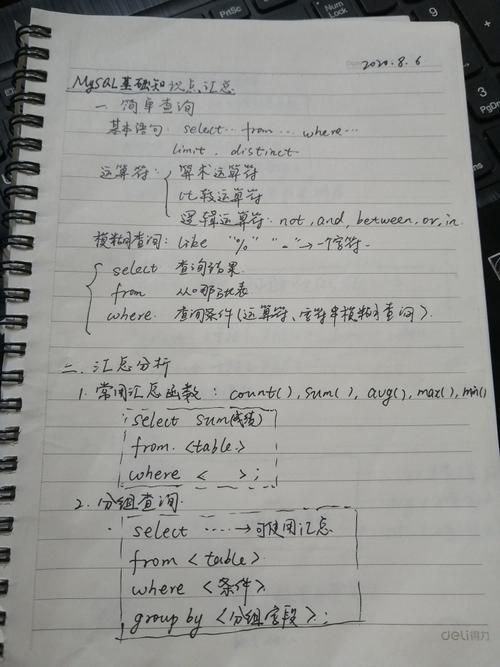 2020.8.6
MySQL基础知识点汇总
一 简单查询
基本语句: select… from … where…
limit . distinct
运算符: 算术运算符
比较运算符
逻辑运算符: not, and, between, or, in
模糊查询: like "%" "_"→一个字符
select 查询结果
from 从哪张表
where. 查询条件(运算符、字符串模糊查询).
二. 汇总分析
1. 常用汇总函数: count(), sum(), avg(), max(), min()
select sum(成绩)
from <table>
where < >;
2. 分组查询
select ……→可使用汇总
from <table>
where <条件>
group by <分组字段>;
deli得力
PrtSc
Num Lock
PgDn
3